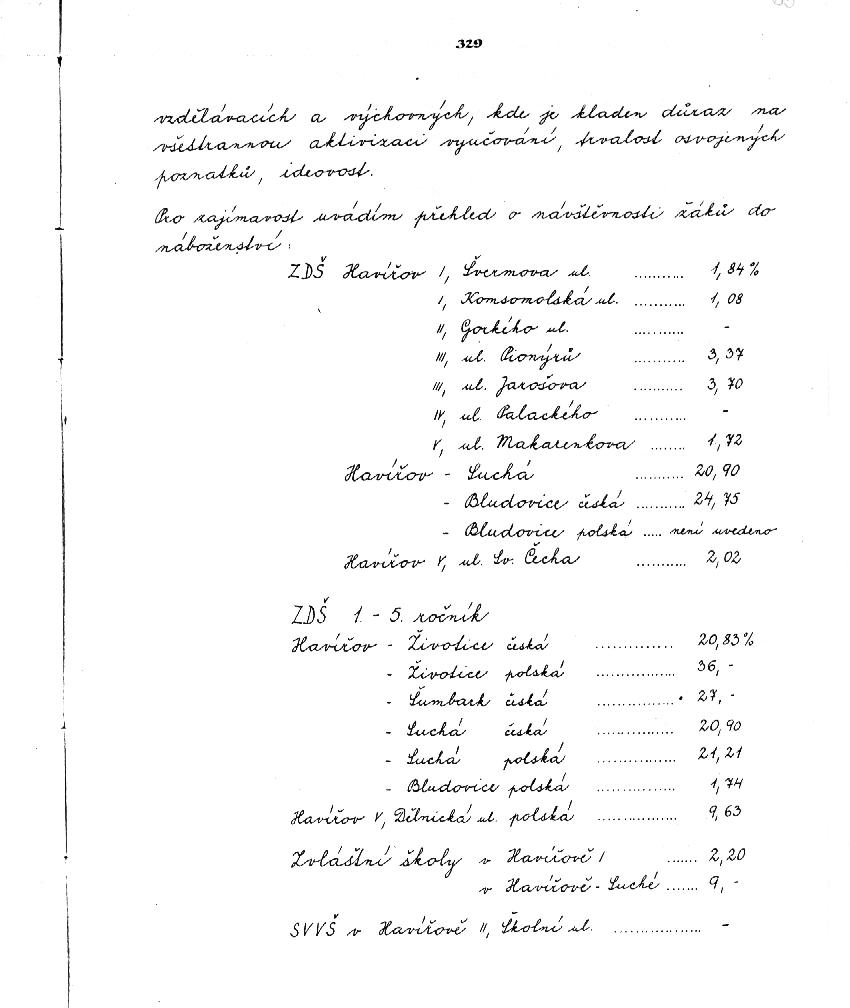 329
vzdělávacích a výchovných, kde je kladen důraz na
všestrannou aktivizaci vyučování, trvalost osvojených
poznatků, ideovost.
Pro zajímavost uvádím přehled o návštěvnosti žáků do
náboženství:
ZDŠ Havířov I, Švermova ul. ........... 1,84%
I, Komsomolská ul. ........... 1,08
II, Gorkého ul. ........... -
III, ul. Pionýrů ........... 3,37
III, ul. Jarošova ........... 3,70
IV, ul. Palackého ........... -
V, ul. Makarenkova ........ 1,72
Havířov - Suchá ........... 20,90
- Bludovice česká ........... 24,75
- Bludovice polská ..... není uvedeno
Havířov V, ul. Sv. Čecha ........... 2,02
ZDŠ 1. - 5. ročník
Havířov - Životice česká .............. 20,83%
- Životice polská ................. 36,-
- Šumbark česká ................. 27,-
- Suchá česká ................. 20,90
- Suchá polská ................. 21,21
- Bludovice polská ................. 1,74
Havířov V, Dělnická ul. polská ................. 9,63
Zvláštní školy v Havířově I ....... 2,20
v Havířově - Suché ....... 9,-
SVVŠ v Havířově II, Školní ul. .................. -